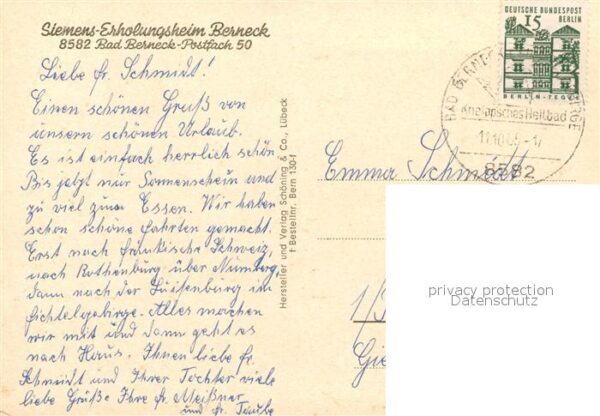 Siemens-Erholungsheim Berneck
8582 Bad Berneck-Postfach 50
Liebe fr. Schmidt!
Einen schönen Gruß von
unsern schönen Urlaub.
Es ist einfach herrlich schön
Bis jetzt nur Sonnenschein und
zu viel zum Essen. Wir haben
schon schöne fahrten gemacht.
Erst nach fränkische Schweiz,
nach Rothenburg über Nürnberg,
dann nach der Luisenburg im
fichtelgebirge. Alles machen
wir mit und dann geht es
nach Haus. Ihnen liebe fr.
Schmidt und Ihrer Tochter viele
liebe Grüße Ihre fr. Meißner
und fr. Taube
Hersteller und Verlag Schöning & Co., Lübeck
Bestellnr. Bern 1301
DEUTSCHE BUNDESPOST
BERLIN
15
BERLIN-TEGEL
BAD BERNECK
Kneippsches Heilbad
8582
Emma Schmidt
privacy protection
Datenschutz